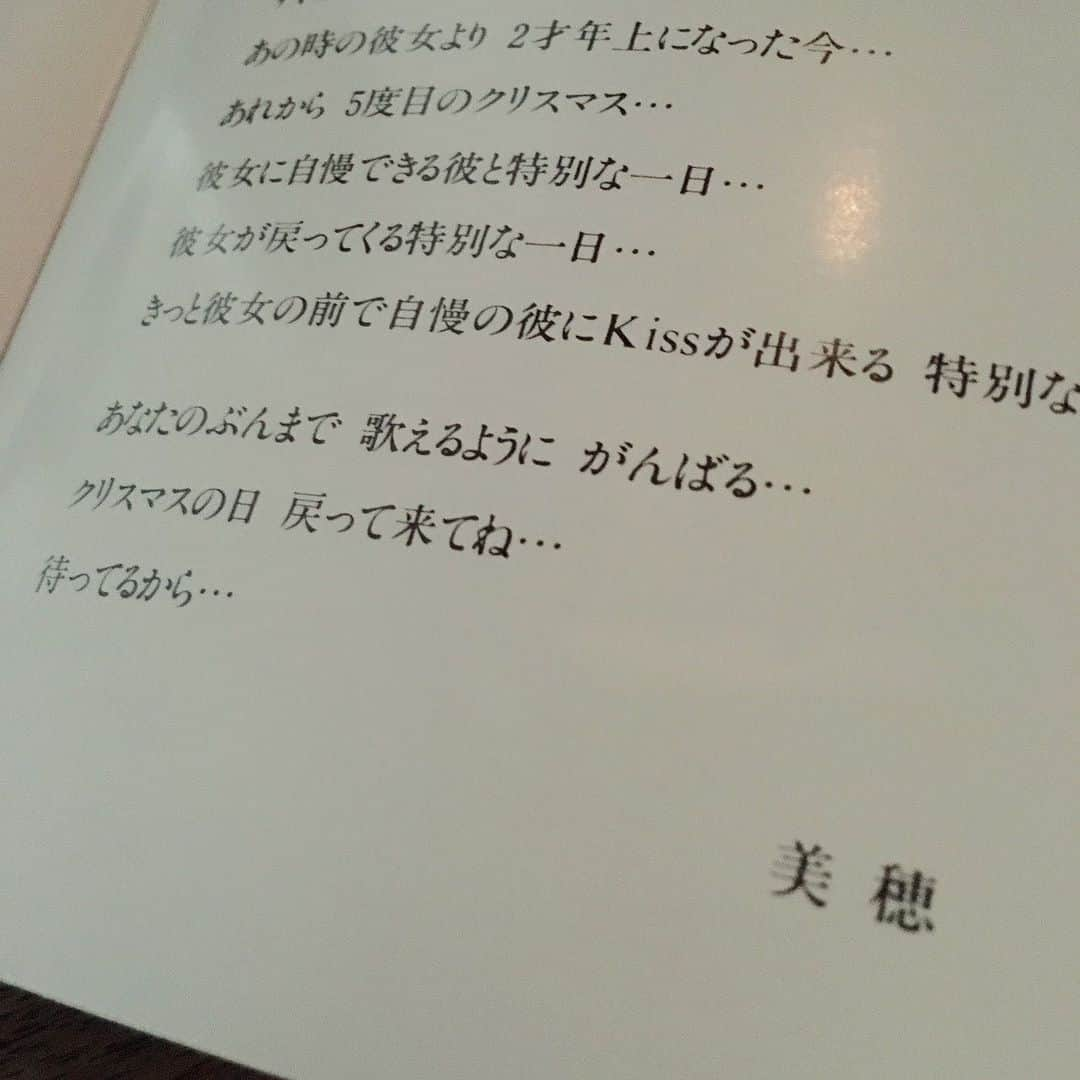 あの時の彼女より 2才年上になった今…
あれから 5度目のクリスマス…
彼女に自慢できる彼と特別な一日…
彼女が戻ってくる特別な一日…
きっと彼女の前で自慢の彼にKissが出来る 特別な
あなたのぶんまで 歌えるように がんばる…
クリスマスの日 戻って来てね…
待ってるから…
美穂